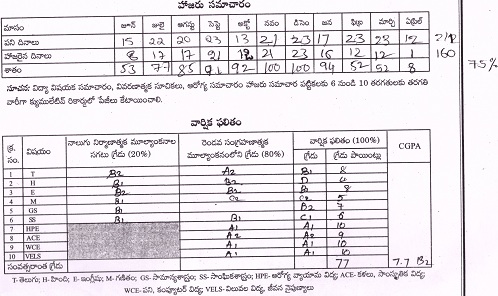 హాజరు సమాచారం
మాసం జూన్ జూలై ఆగస్టు సెప్టె అక్టో నవం డిసెం జన ఫిబ్ర మార్చి ఏప్రిల్
పని దినాలు 15 22 20 23 13 21 23 17 23 23 12 212
హాజరైన దినాలు 8 17 17 21 12 21 23 16 12 12 1 160
శాతం 53 77 85 91 92 100 100 94 52 52 8 75%
సూచన: విద్యా విషయక సమాచారం, వివరణాత్మక సూచికలు, ఆరోగ్య సమాచారం హాజరు సమాచార పట్టికలకు 6 నుండి 10 తరగతులకు తరగతి
వారీగా క్యుములేటివ్ రికార్డులో పేజీలు కేటాయించాలి.
వార్షిక ఫలితం
క్ర. సం. విషయం నాలుగు నిర్మాణాత్మక మూల్యాంకనాల సగటు గ్రేడు (20%) రెండవ సంగ్రహణాత్మక మూల్యాంకనంలోని గ్రేడు (80%) వార్షిక ఫలితం (100%) CGPA
గ్రేడు గ్రేడు పాయింట్లు
1 T B2 A2 B1 8
2 H B1 B2 D 4
3 E B2 B2 B1 8
4 M B1 C2 C2 5
5 GS B1 B2 7
6 SS B1 B1 C1 6
7 HPE A1 A1 10
8 ACE A2 A2 9
9 WCE A1 A1 10
10 VELS A1 A1 10
సంవత్సరాంత గ్రేడు 77 7.7 B2
T-తెలుగు; H-హింది; E-ఇంగ్లీషు; M-గణితం; GS- సామాన్యశాస్త్రం; SS- సాంఘికశాస్త్రం; HPE- ఆరోగ్య వ్యాయామ విద్య; ACE-కళలు, సాంస్కృతిక విద్య;
WCE-పని, కంప్యూటర్ విద్య; VELS-విలువల విద్య, జీవన నైపుణ్యాలు